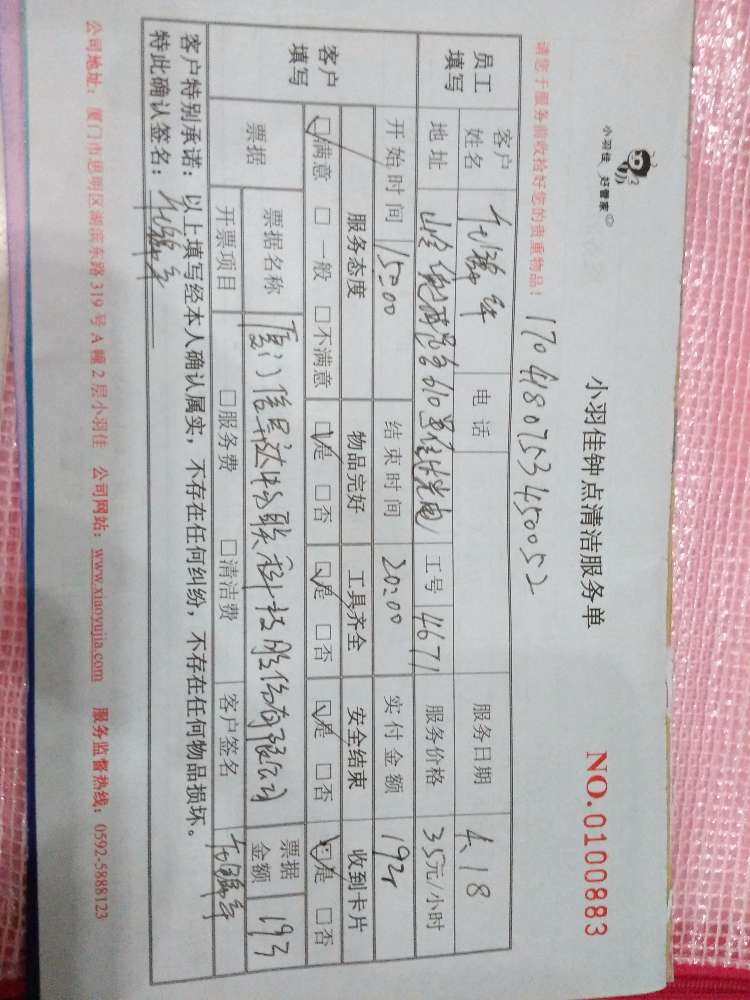 小羽佳 好管家
小羽佳钟点清洁服务单
NO.0100883
请您于服务前收拾好您的贵重物品！
1704180753450052
员工填写
客户姓名
电话
服务日期 4.18
地址
610
光电
工号 4671
服务价格 35元/小时
开始时间 15:00
结束时间 20:00
实付金额 192
客户填写
服务态度 物品完好 工具齐全 安全结束 收到卡片
☑满意 □一般 □不满意 ☑是 □否 ☑是 □否 ☑是 □否 ☑是 □否
票据
票据名称 厦门信
达物联科技股份有限公司
票据金额 193
开票项目 □服务费 □清洁费 客户签名
客户特别承诺：以上填写经本人确认属实，不存在任何纠纷，不存在任何物品损坏。
特此确认签名：
公司地址：厦门市思明区湖滨东路319号A幢2层小羽佳 公司网站：www.xiaoyujia.com 服务监督热线：0592-5888123